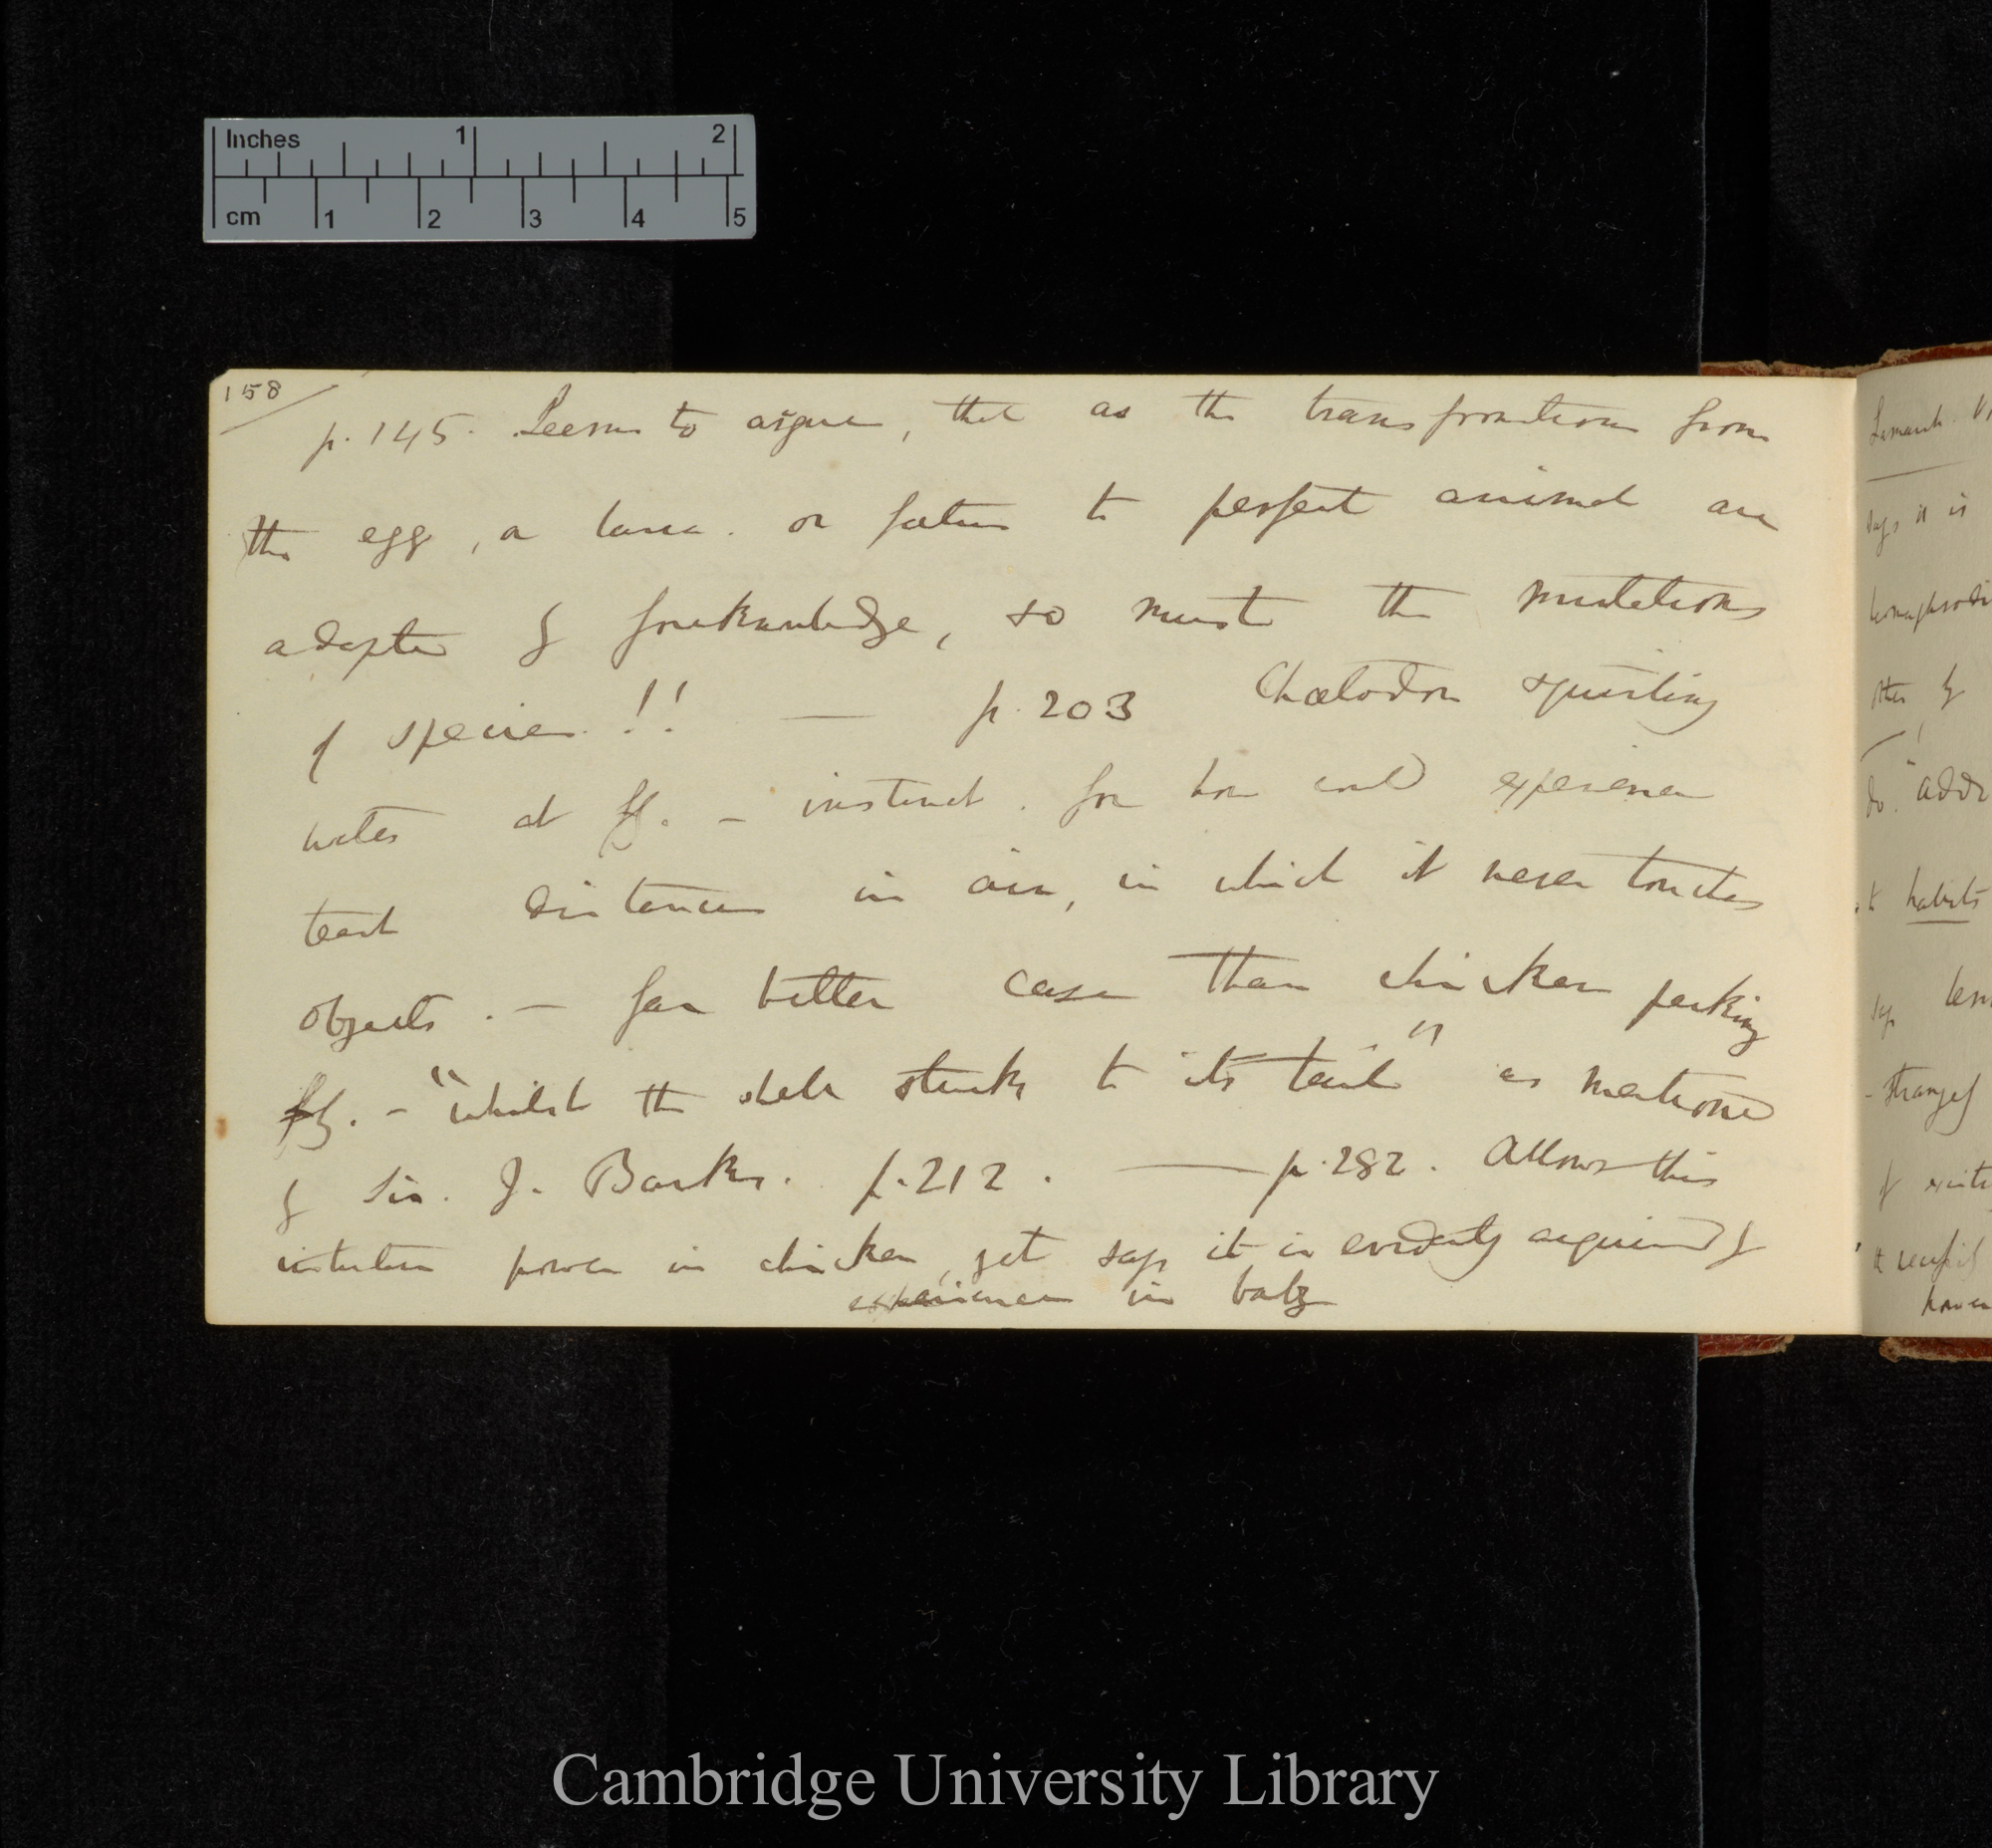 Inches 1 2
cm 1 2 3 4 5
158
p. 145. Seems to argue, that as the transformations from
the egg, a larva. or foetus to perfect animal are
adapted by foreknowledge, so must the mutations
of species.!! — p. 203 Chætodon squirting
water at fly. — instinct. for how could experience
teach distance in air, in which it never touches
objects. — far better case than chicken pecking
fly. — "whilst the shell sticks to its tail" as mentioned
by Sir. J. Banks. p. 212. — p. 282. Allows this
intuitive power in chicken, yet says it is evidently acquired by
experience in baby
Lamarck. V
says it is
other by
do. "addr
to habits
says
strangely
of
Cambridge University Library